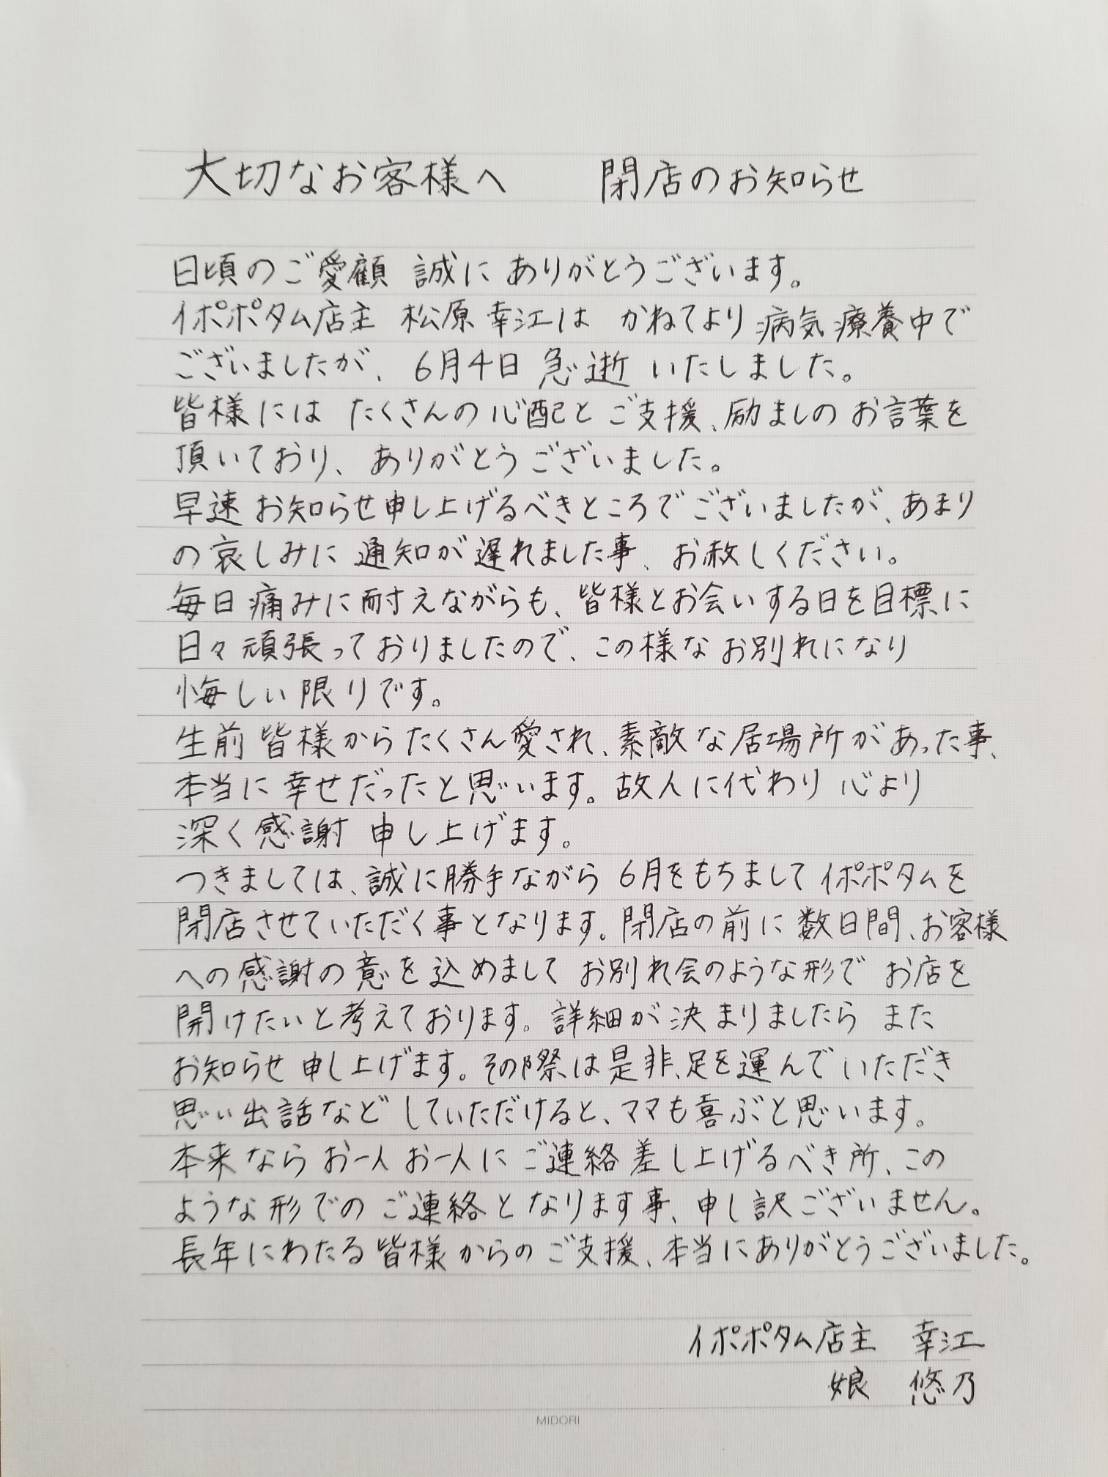 大切なお客様へ　閉店のお知らせ
日頃のご愛顧 誠に ありがとうございます。
イポポタム店主 松原 幸江は かねてより 病気療養中で
ございましたが、6月4日 急逝 いたしました。
皆様には たくさんの 心配と ご支援、励ましの お言葉を
頂いており、ありがとうございました。
早速 お知らせ申し上げるべきところでございましたが、あまり
の哀しみに 通知が遅れました事、お赦しください。
毎日 痛みに耐えながらも、皆様とお会いする日を目標に
日々頑張っておりましたので、この様な お別れになり
悔しい限りです。
生前 皆様から たくさん愛され、素敵な居場所があった事、
本当に 幸せだったと思います。故人に代わり 心より
深く感謝 申し上げます。
つきましては、誠に勝手ながら 6月をもちまして イポポタムを
閉店させていただく事となります。閉店の前に 数日間、お客様
への感謝の意を込めまして お別れ会のような形で お店を
開けたいと考えております。詳細が決まりましたら また
お知らせ 申し上げます。その際は是非、足を運んでいただき
思い出話など していただけると、ママも喜ぶと思います。
本来なら お一人 お一人に ご連絡差し上げるべき所、この
ような形での ご連絡となります事、申し訳ございません。
長年にわたる皆様からの ご支援、本当にありがとうございました。
イポポタム店主　幸江
娘　悠乃
MIDORI